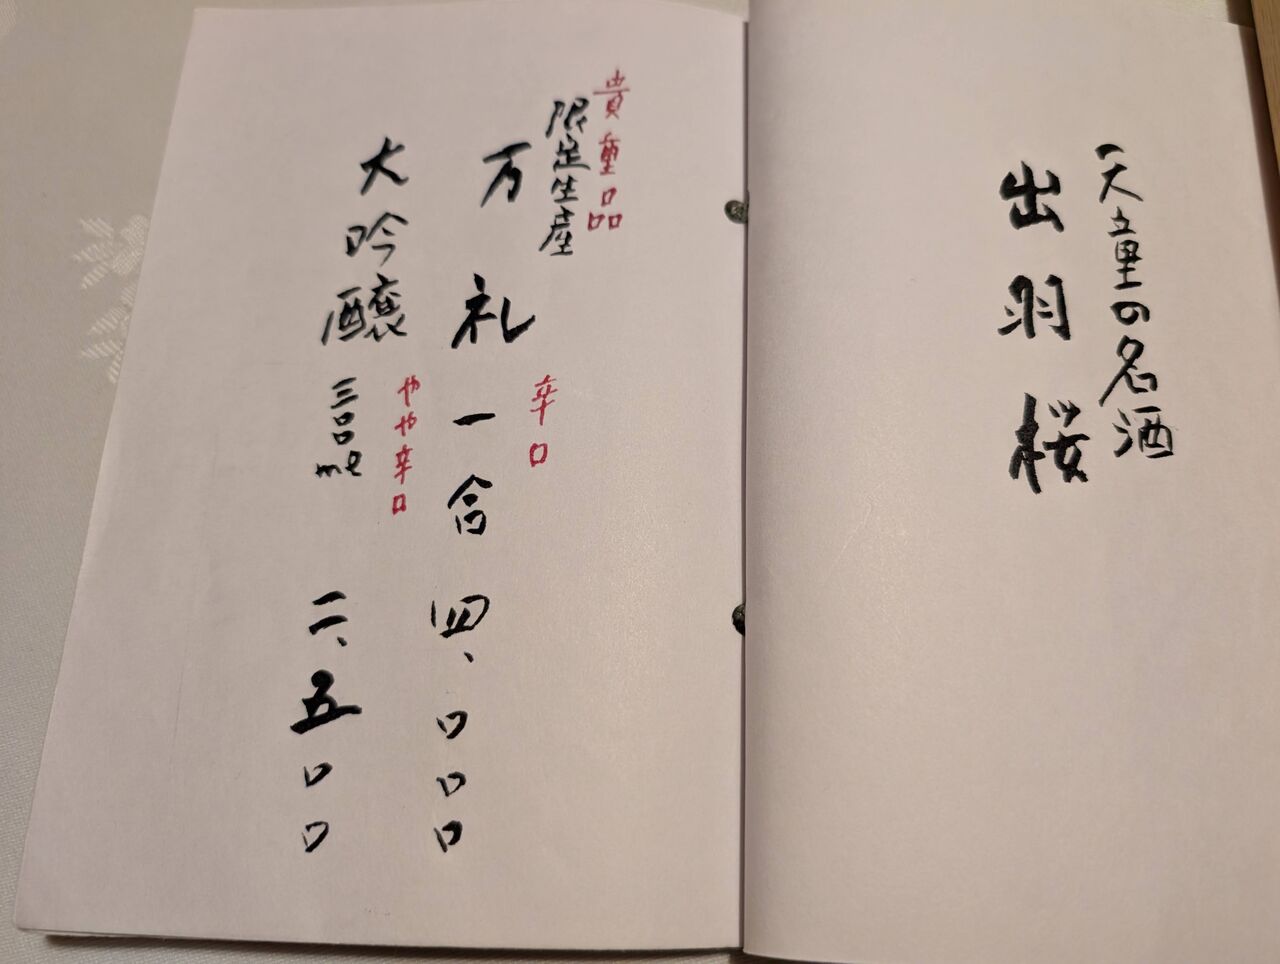 天童の名酒
出羽桜
貴重品
限定生産
万礼 一合 四、〇〇〇
辛口
大吟醸 三〇〇ml 二、五〇〇
やや辛口